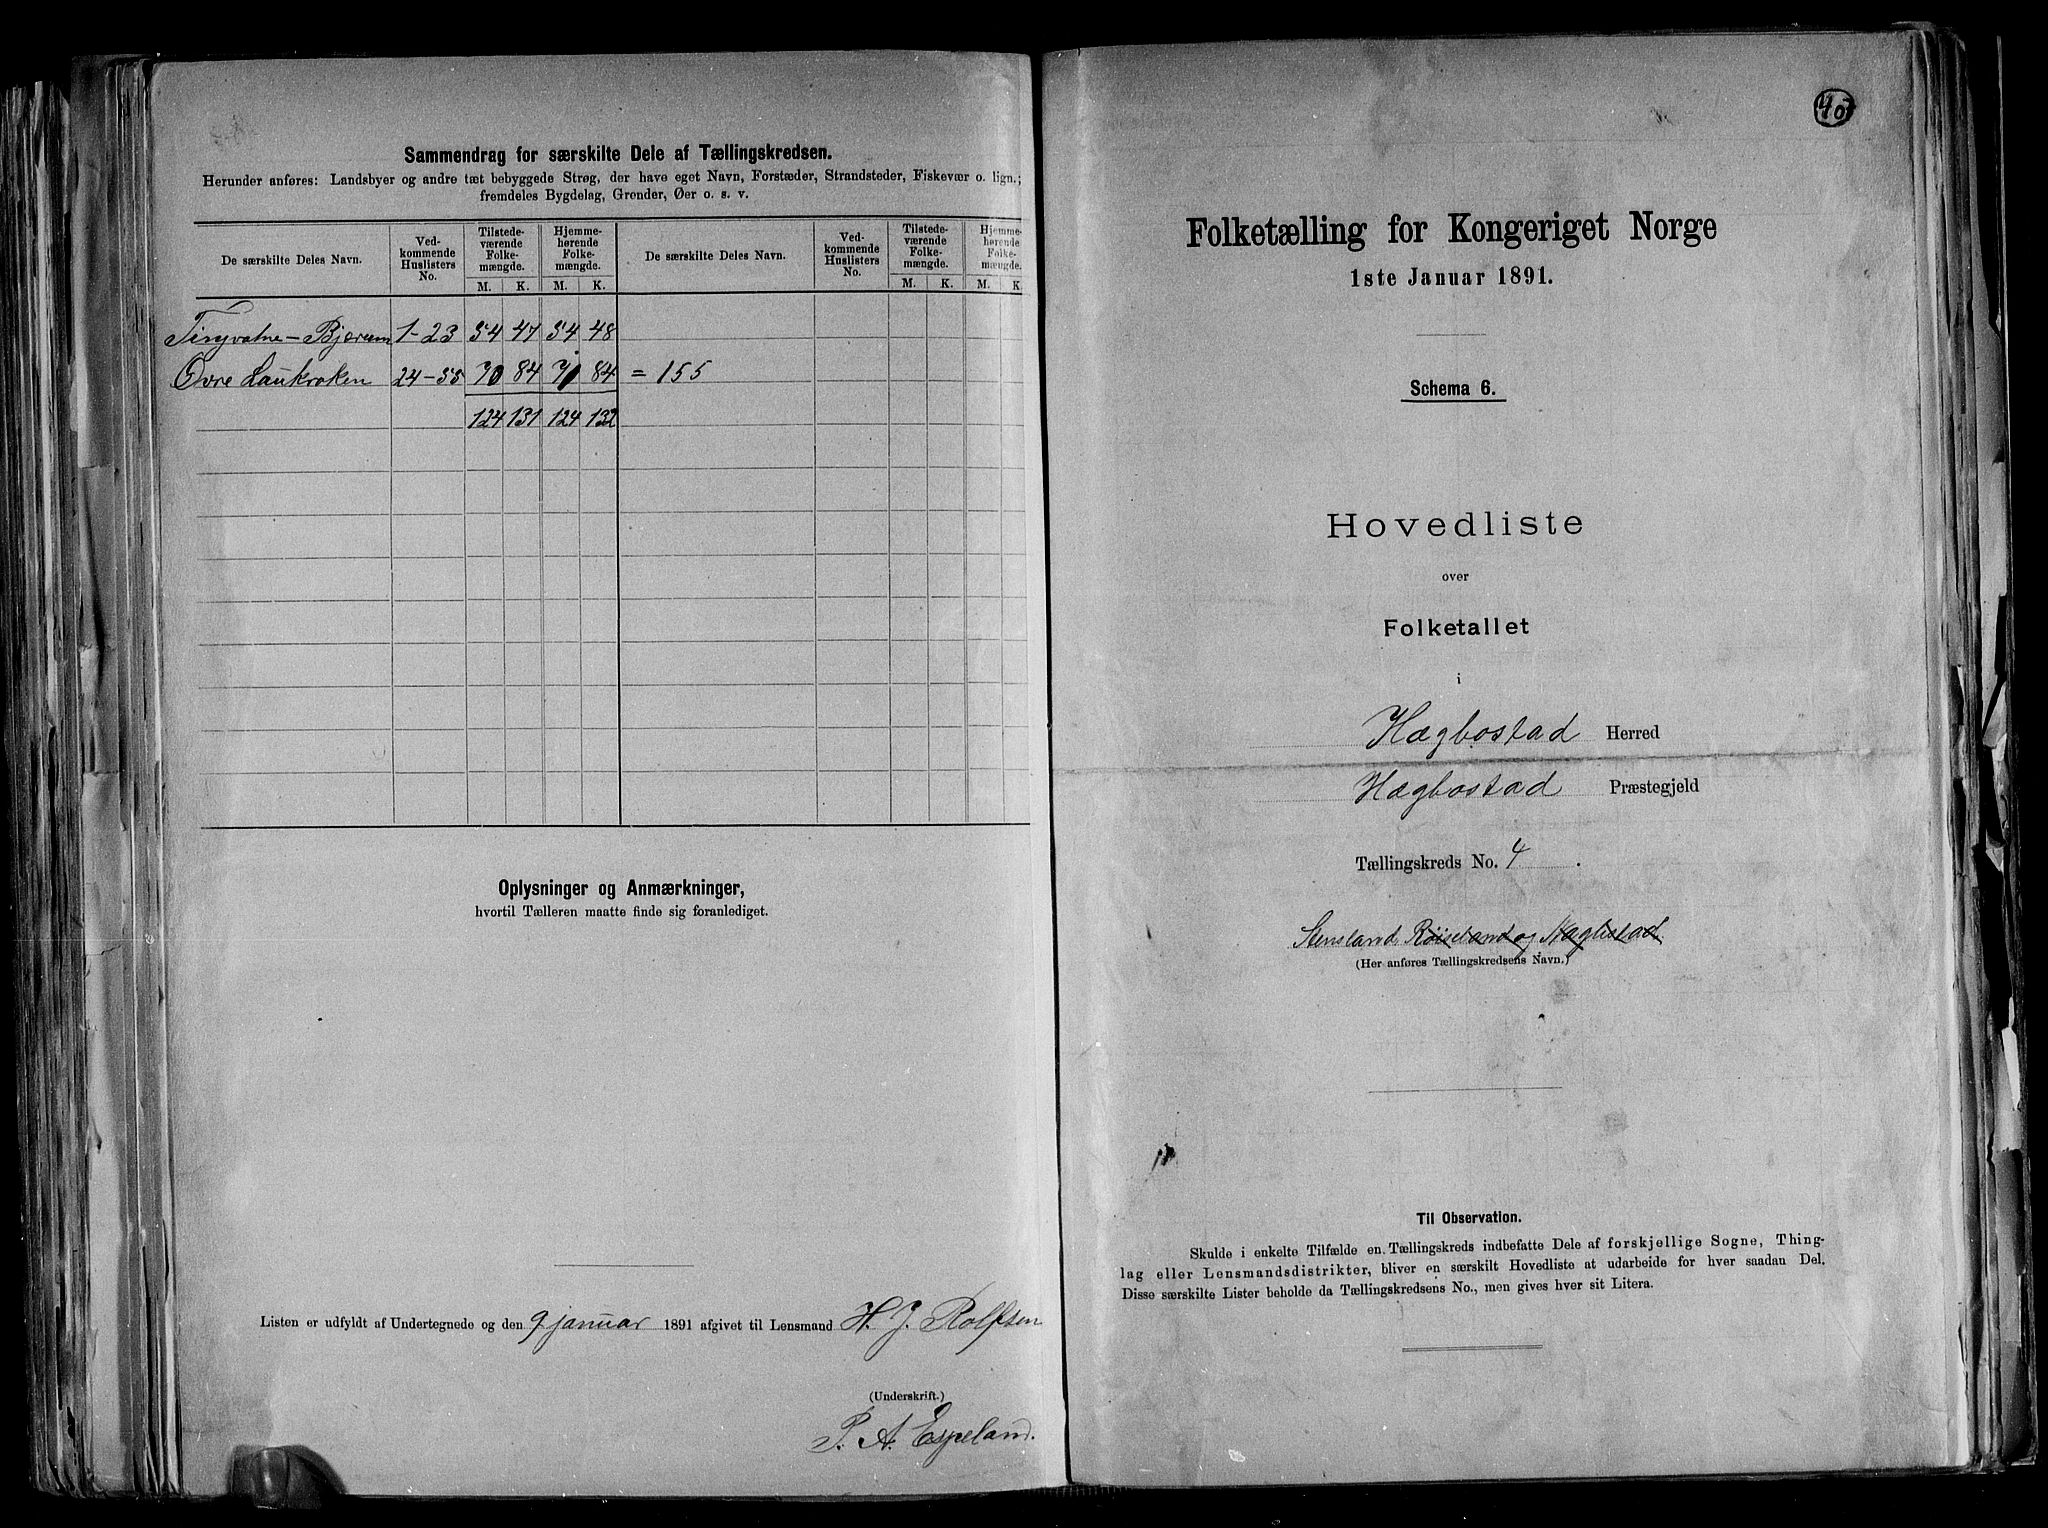 Sammendrag for særskilte Dele af Tællingskredsen.
Herunder anføres: Landsbyer og andre tæt bebyggede Strøg, der have eget Navn, Forstæder, Strandsteder, Fiskevær o. lign.;
fremdeles Bygdelag, Grender, Øer o. s. v.
De særskilte Deles Navn. Ved-kommende Huslisters No. Tilstede-værende Folke-mængde. Hjemme-hørende Folke-mængde. De særskilte Deles Navn. Ved-kommende Huslisters No. Tilstede-værende Folke-mængde. Hjemme-hørende Folke-mængde.
M. K. M. K. M. K. M. K.
Tingvatne - Bjærum 1-23 54 47 54 48
Øvre Laukroken 24-55 70 84 84 = 155
124 131 124 132
Oplysninger og Anmærkninger,
hvortil Tælleren maatte finde sig foranlediget.
Listen er udfyldt af Undertegnede og den 9 januar 1891 afgivet til Lensmand H. J. Rolfsen
(Underskrift.)
P. A. Espeland.
40
Folketælling for Kongeriget Norge
1ste Januar 1891.
Schema 6.
Hovedliste
over
Folketallet
i
Hægbostad Herred
Hægbostad Præstegjeld
Tællingskreds No. 4.
Stensland, Röiseland og Hægbostad.
(Her anføres Tællingskredsens Navn.)
Til Observation.
Skulde i enkelte Tilfælde en Tællingskreds indbefatte Dele af forskjellige Sogne, Thing-
lag eller Lensmandsdistrikter, bliver en særskilt Hovedliste at udarbeide for hver saadan Del.
Disse særskilte Lister beholde da Tællingskredsens No., men gives hver sit Litera.